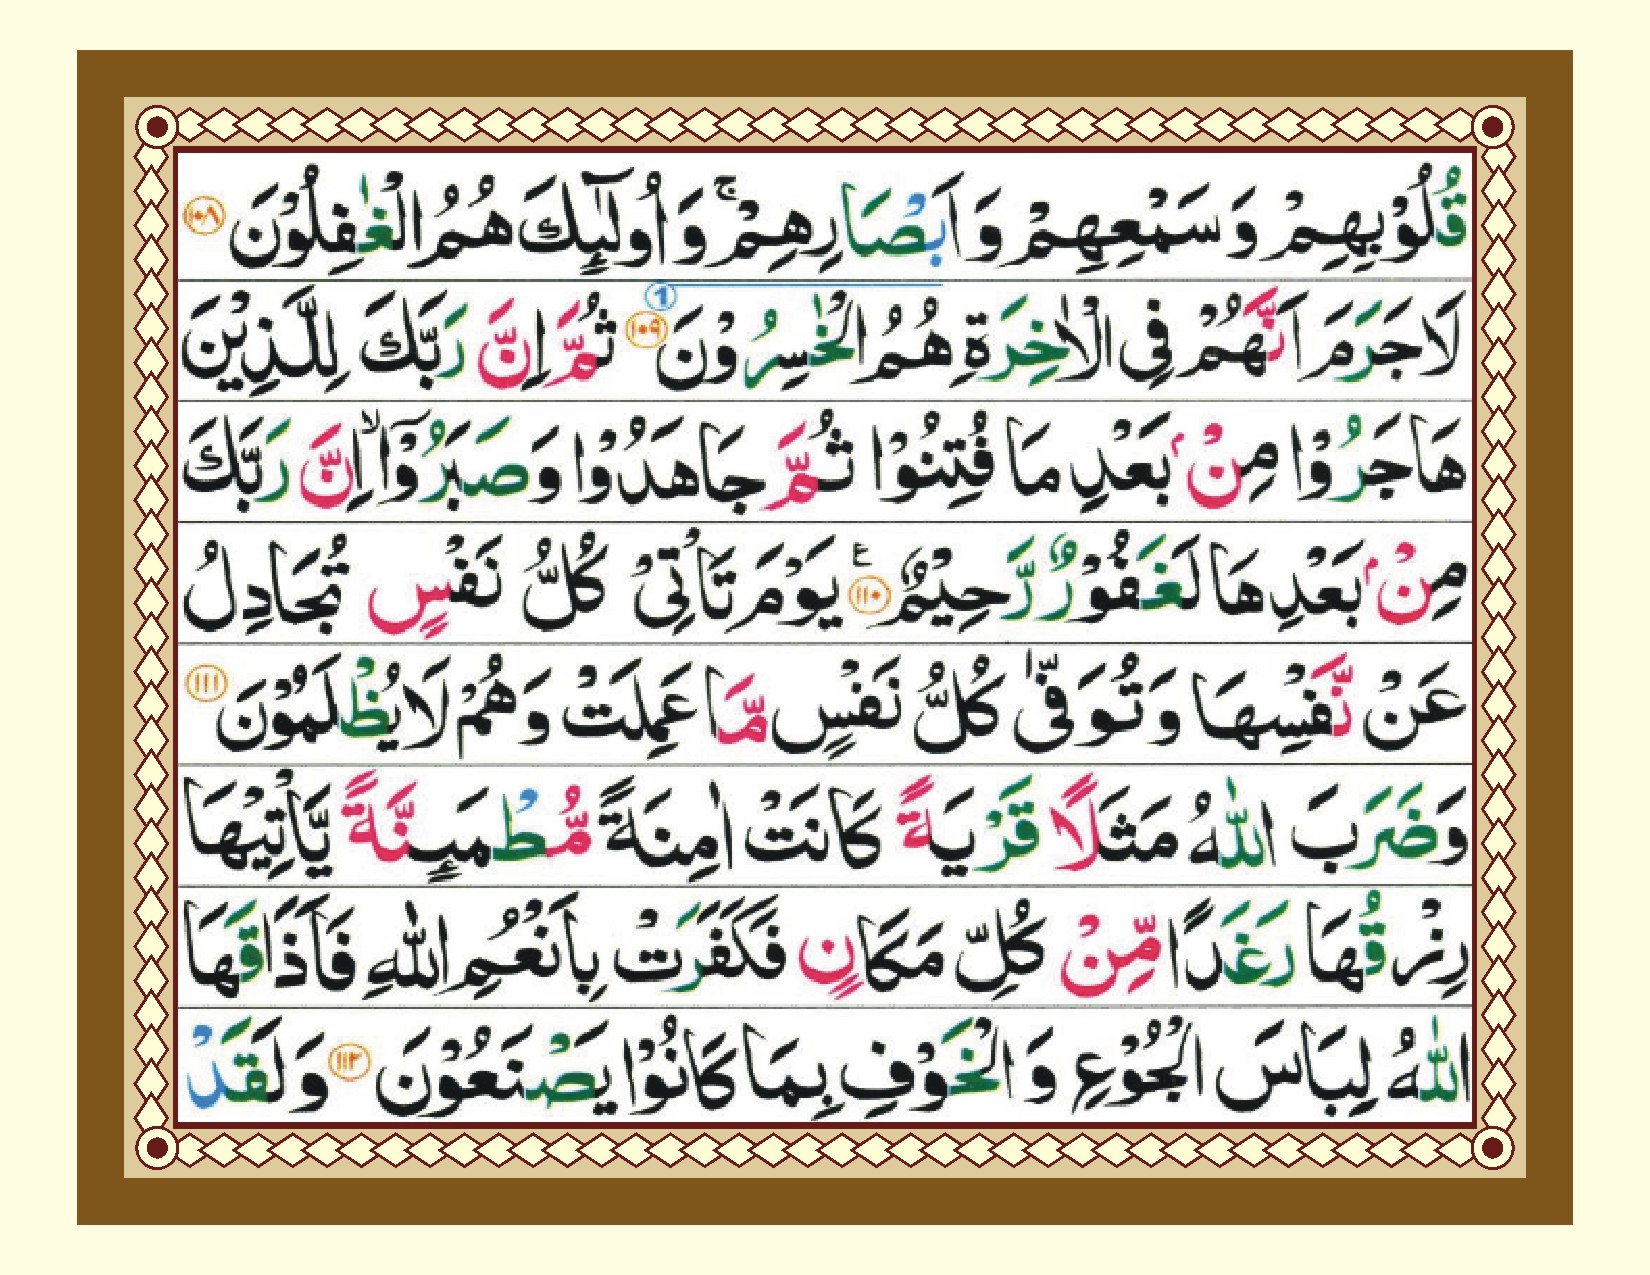 قُلُوْبِهِمْ وَسَمْعِهِمْ وَاَبْصَارِهِمْ ۚ وَاُولٰٓئِكَ هُمُ الْغٰفِلُوْنَ ﴿۱۰۸﴾
لَا جَرَمَ اَنَّهُمْ فِى الْاٰخِرَةِ هُمُ الْخٰسِرُوْنَ ﴿۱۰۹﴾ ① ثُمَّ اِنَّ رَبَّكَ لِلَّذِيْنَ
هَاجَرُوْا مِنْۢ بَعْدِ مَا فُتِنُوْا ثُمَّ جَاهَدُوْا وَصَبَرُوْۤا ۙ اِنَّ رَبَّكَ
مِنْۢ بَعْدِهَا لَغَفُوْرٌ رَّحِيْمٌ ﴿۱۱۰﴾ ع يَوْمَ تَاْتِىْ كُلُّ نَفْسٍ تُجَادِلُ
عَنْ نَّفْسِهَا وَتُوَفّٰى كُلُّ نَفْسٍ مَّا عَمِلَتْ وَهُمْ لَا يُظْلَمُوْنَ ﴿۱۱۱﴾
وَضَرَبَ اللّٰهُ مَثَلًا قَرْيَةً كَانَتْ اٰمِنَةً مُّطْمَىِٕنَّةً يَّاْتِيْهَا
رِزْقُهَا رَغَدًا مِّنْ كُلِّ مَكَانٍ فَكَفَرَتْ بِاَنْعُمِ اللّٰهِ فَاَذَاقَهَا
اللّٰهُ لِبَاسَ الْجُوْعِ وَالْخَوْفِ بِمَا كَانُوْا يَصْنَعُوْنَ ﴿۱۱۲﴾ وَلَقَدْ